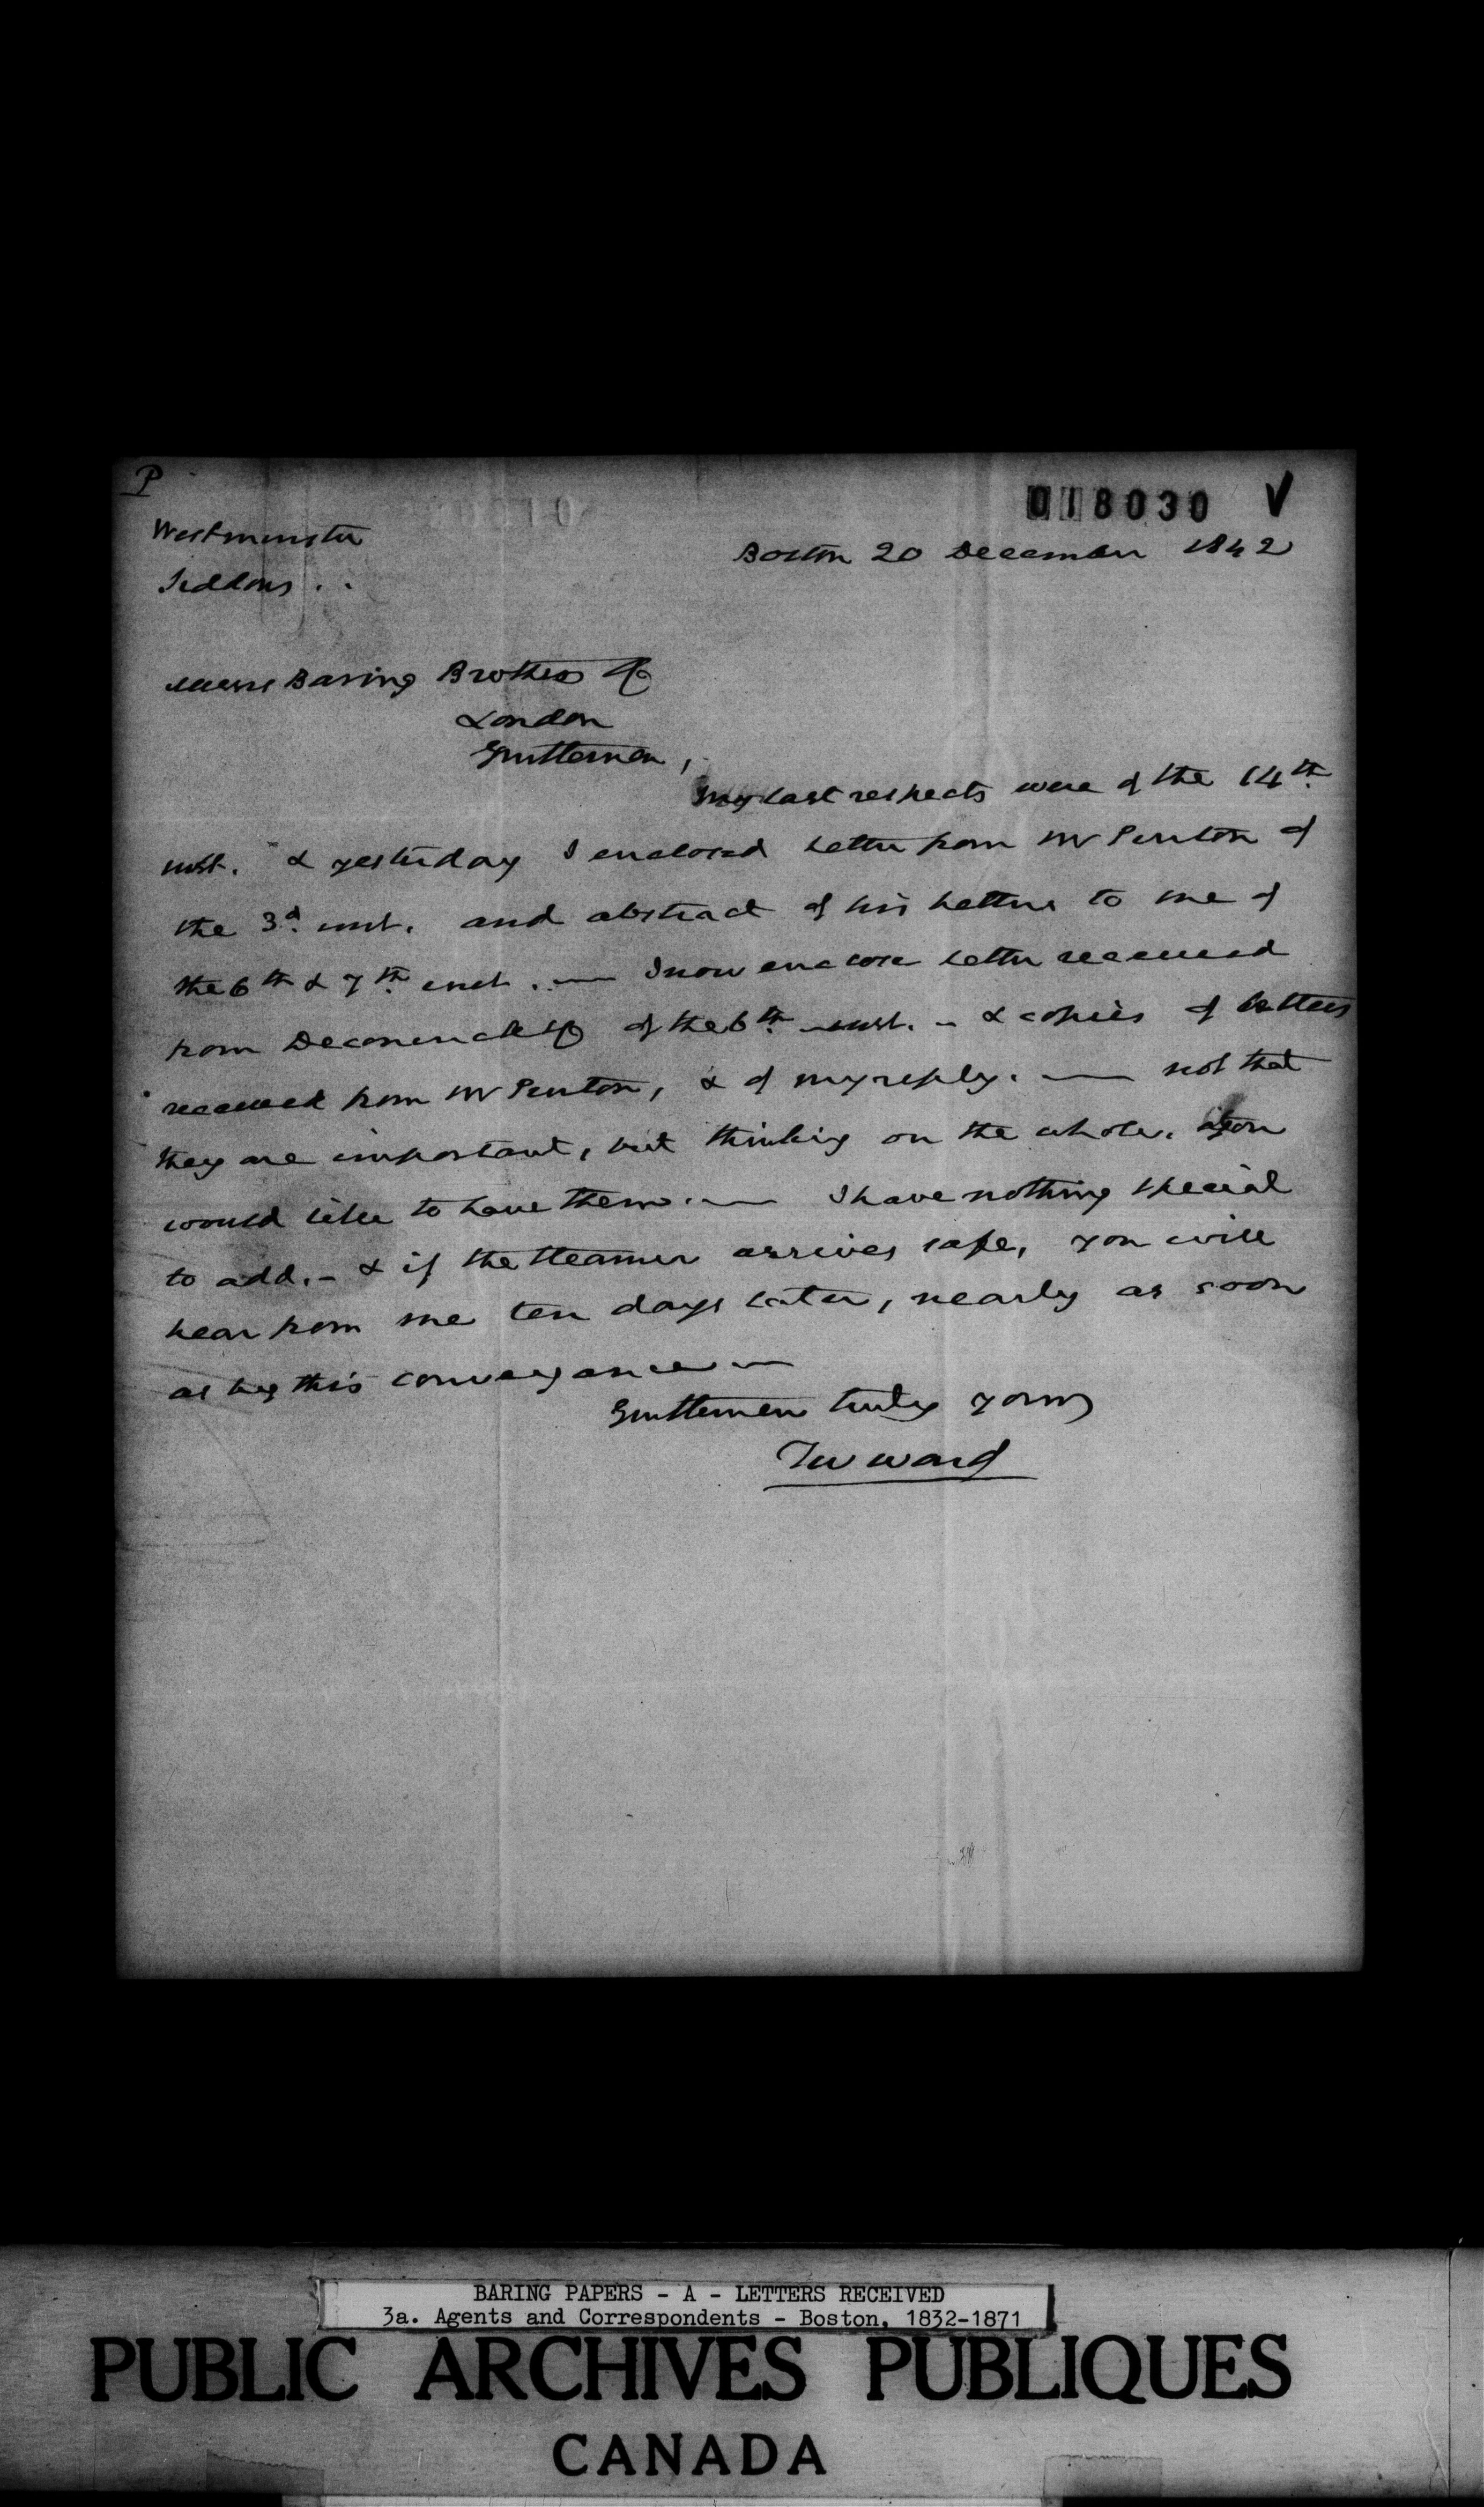 P
018030 V
Westminster
Siddons . .
Boston 20 December 1842
Messrs Baring Brothers & Co
London
Gentlemen,
My last respects were of the 14th
inst. & yesterday I enclosed letter from Mr Penton of
the 3d. inst. and abstract of his letters to me of
the 6th & 7th inst. — I now enclose letter received
from Deconinck & Co of the 6th inst. - & copies of letters
received from Mr Penton, & of my reply. — not that
they are important, but thinking on the whole, you
would like to have them. — I have nothing special
to add. - & if the steamer arrives safe, you will
hear from me ten days later, nearly as soon
as by this conveyance —
Gentlemen truly yours
TW Ward
BARING PAPERS - A - LETTERS RECEIVED
3a. Agents and Correspondents - Boston, 1832-1871
PUBLIC ARCHIVES PUBLIQUES
CANADA